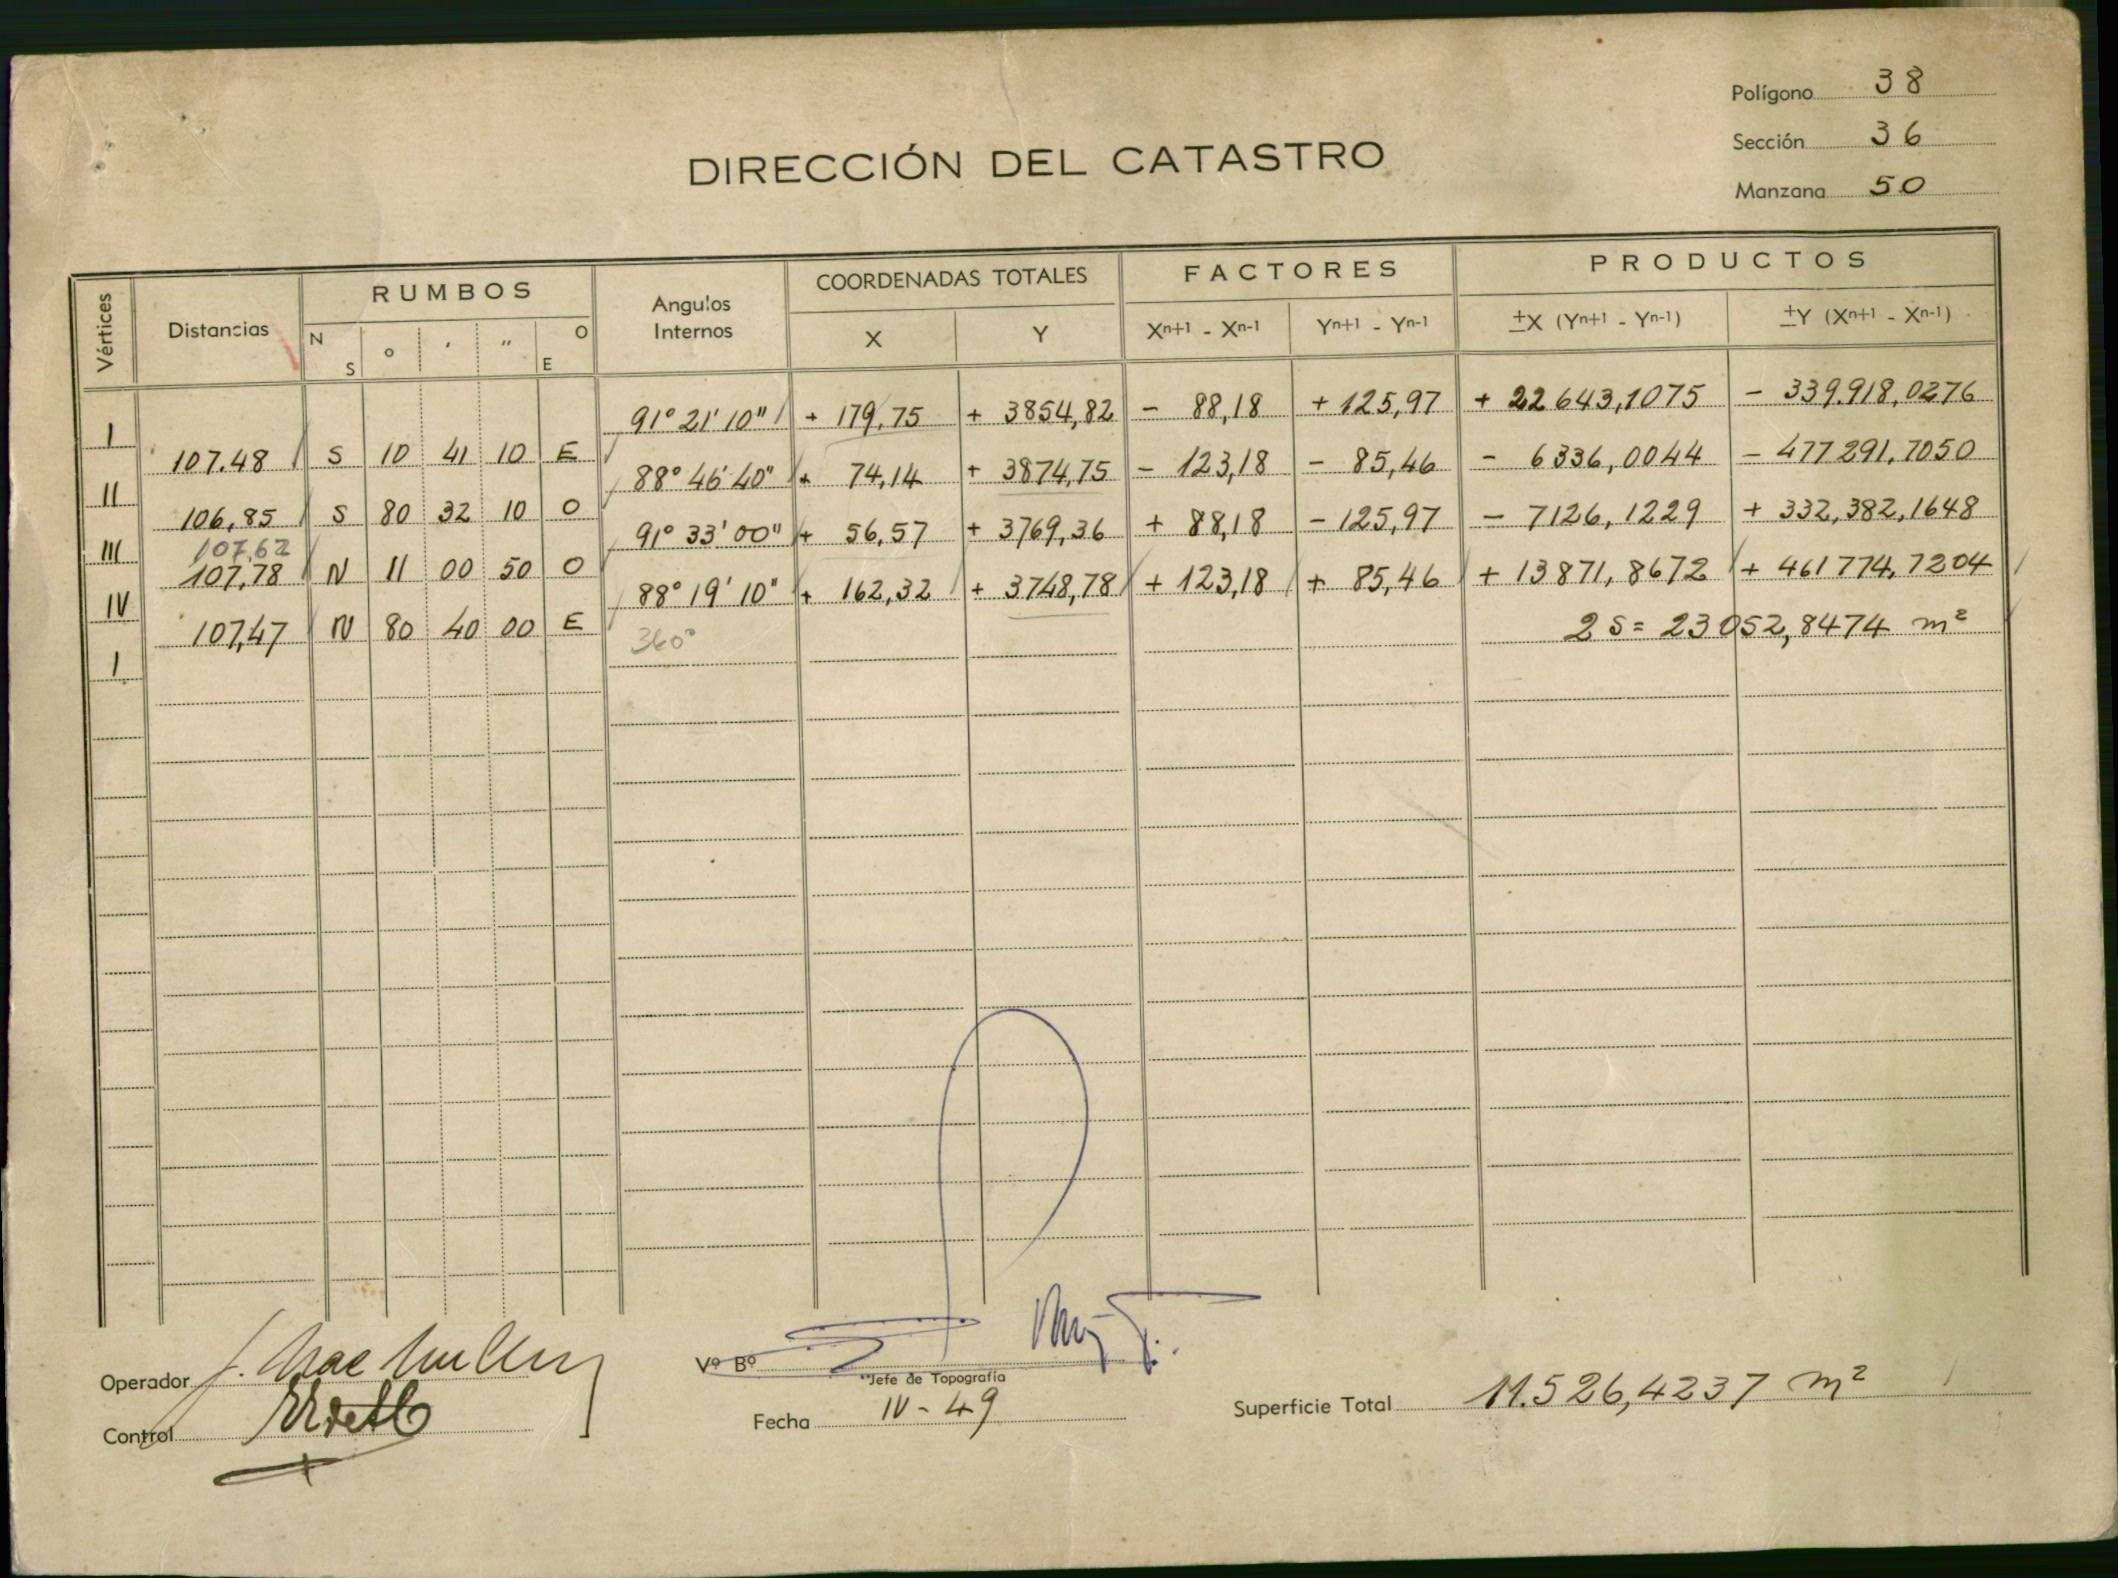 Polígono 38
Sección 36
Manzana 50
DIRECCIÓN DEL CATASTRO
Vértices Distancias RUMBOS Angulos Internos COORDENADAS TOTALES FACTORES PRODUCTOS
N S ° ' " O E X Y Xn+1 - Xn-1 Yn+1 - Yn-1 ±X (Yn+1 - Yn-1) ±Y (Xn+1 - Xn-1)
I 91° 21' 10" + 179,75 + 3854,82 - 88,18 + 125,97 + 22643,1075 - 339.918,0276
107.48 S 10 41 10 E
II 88° 46' 40" + 74,14 + 3874,75 - 123,18 - 85,46 - 6336,0044 - 477291,7050
106,85 S 80 32 10 O
III 91° 33' 00" + 56,57 + 3769,36 + 88,18 - 125,97 - 7126,1229 + 332,382,1648
107,62
107,78 N 11 00 50 O
IV 88° 19' 10" + 162,32 + 3748,78 + 123,18 + 85,46 + 13871,8672 + 461774,7204
107,47 N 80 40 00 E
360°
2 S = 23052,8474 m²
I
Operador
Control
Vº Bº
Jefe de Topografía
Fecha IV - 49
Superficie Total 11.526,4237 m²